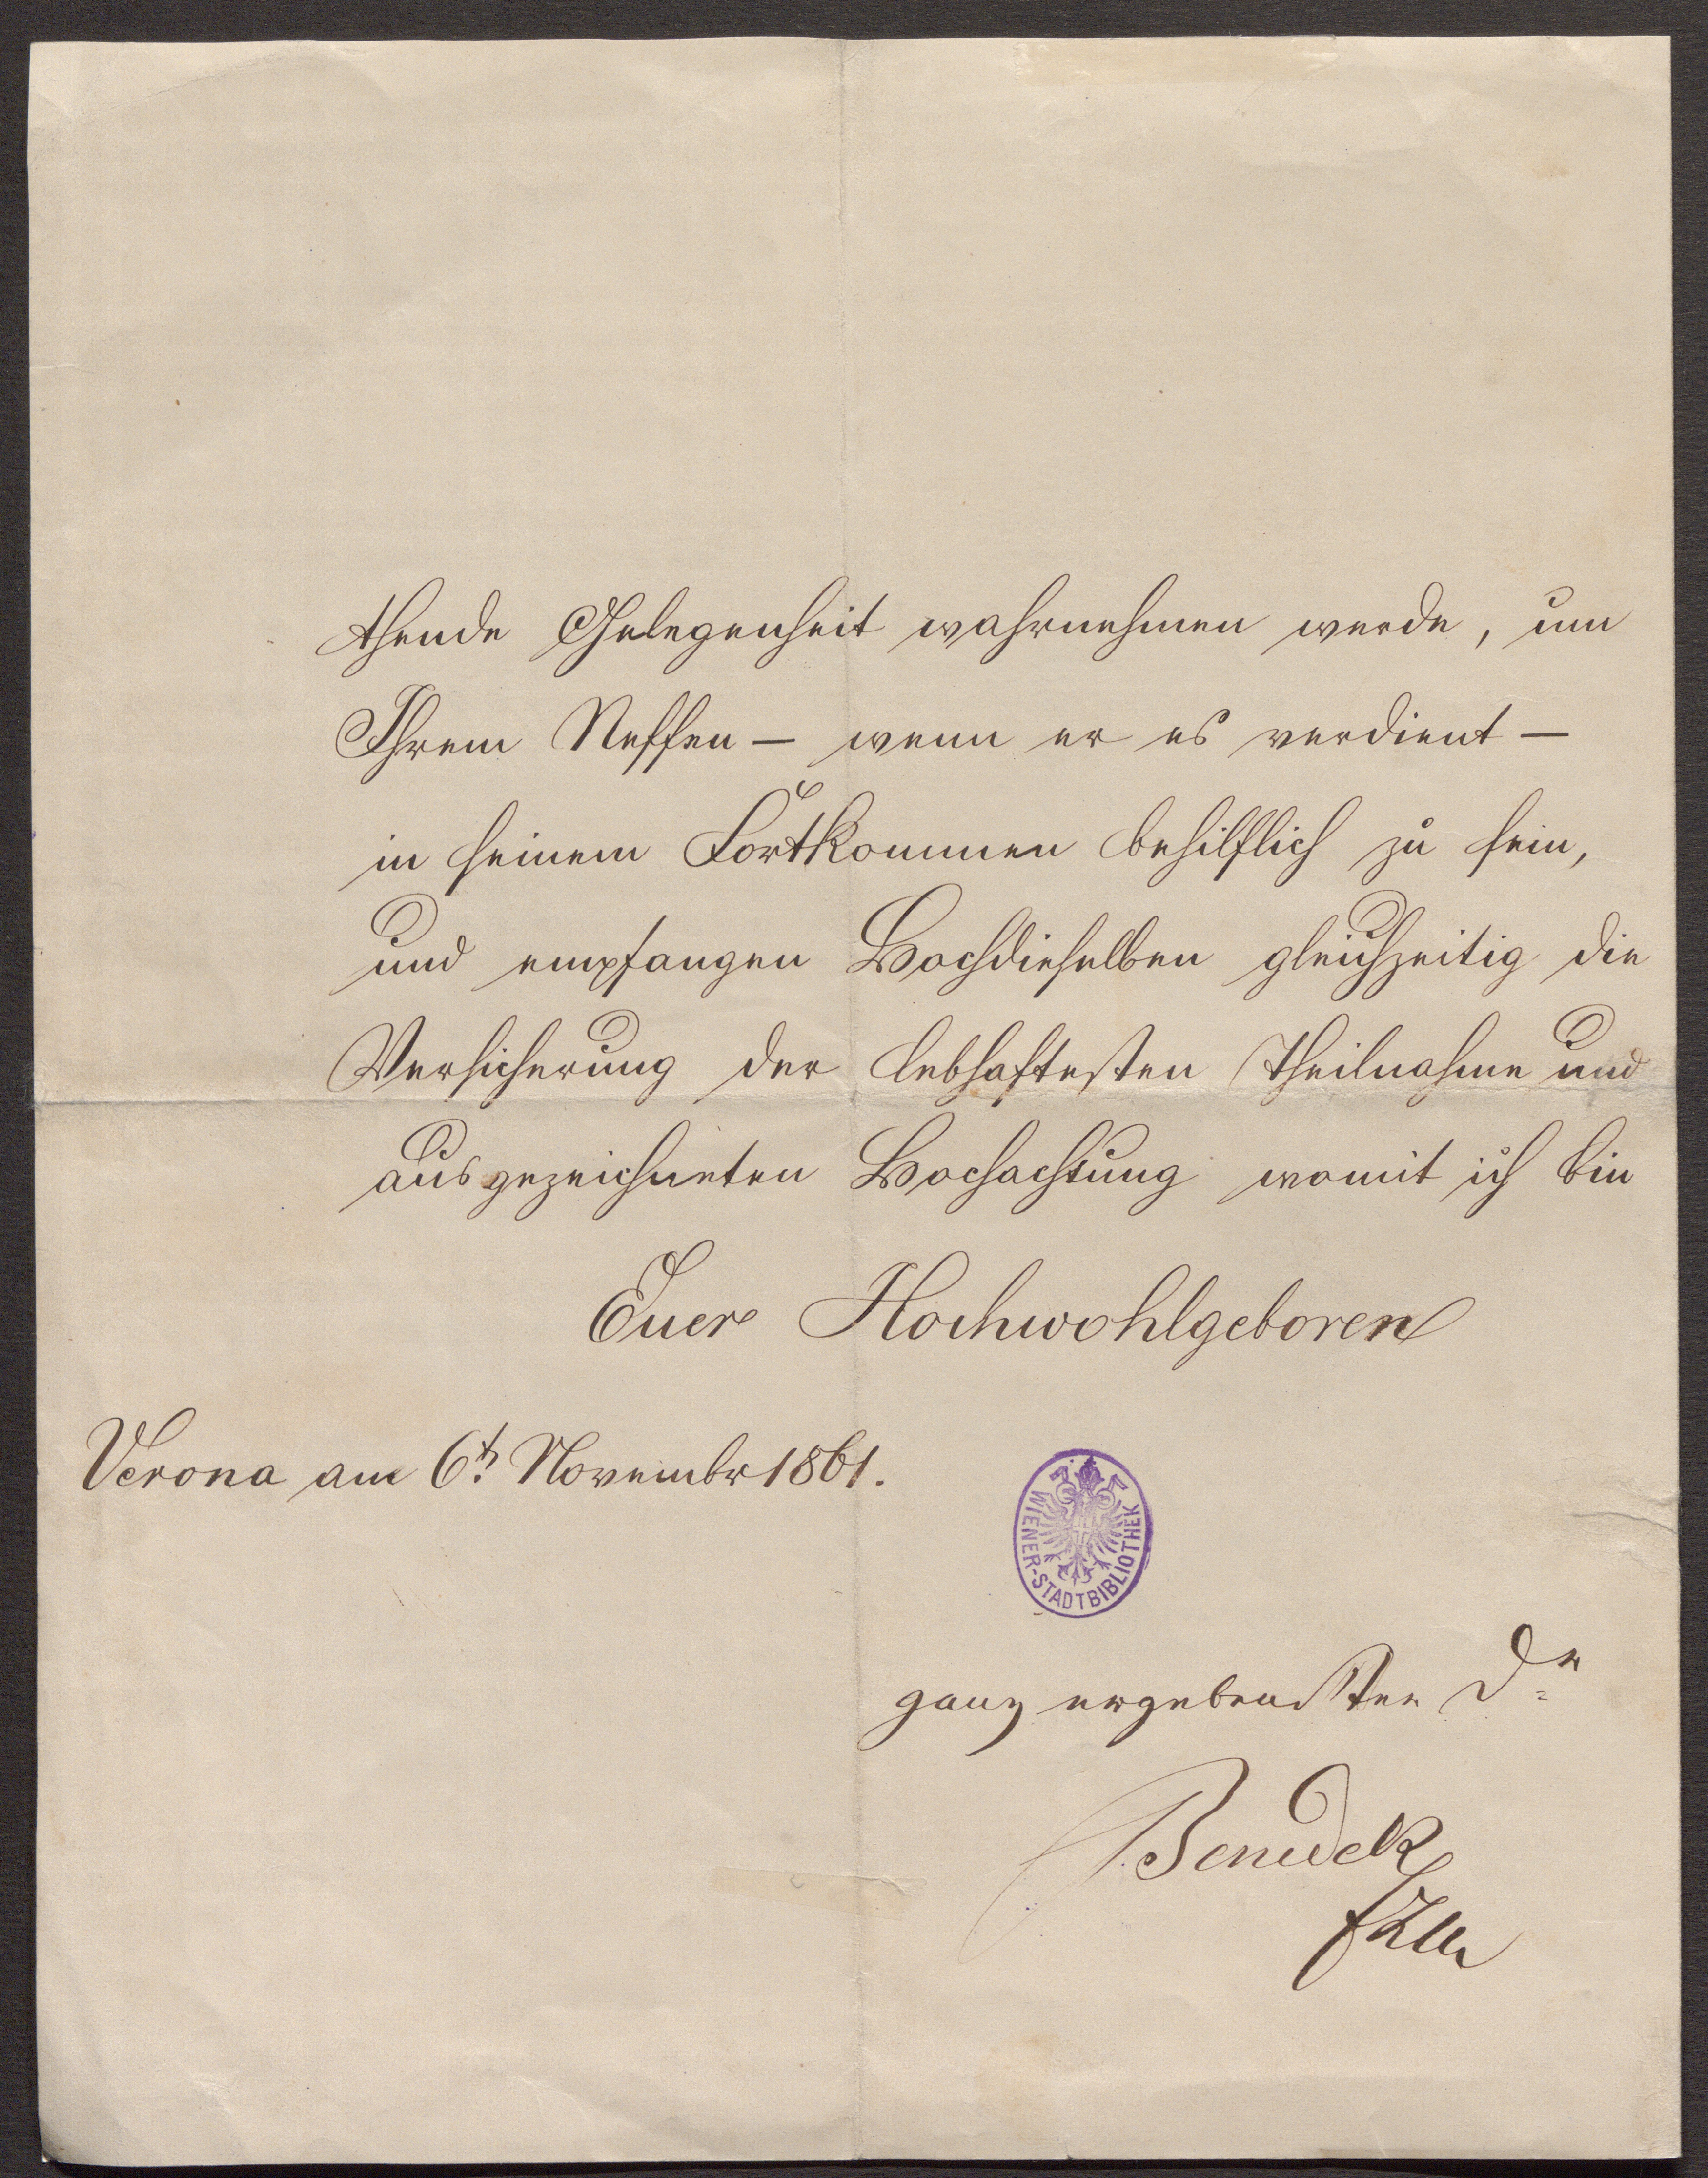 thende Gelegenheit wahrnehmen werde, um
Ihrem Neffen – wenn er es verdient –
in seinem Fortkommen behilflich zu sein,
und empfangen Hochdieselben gleichzeitig die
Versicherung der lebhaftesten Theilnahme und
ausgezeichneten Hochachtung womit ich bin
Euer Hochwohlgeboren
Verona am 6t. Novembr 1861.
WIENER-STADTBIBLIOTHEK
ganz ergebenster Dr
Benedek
FZM